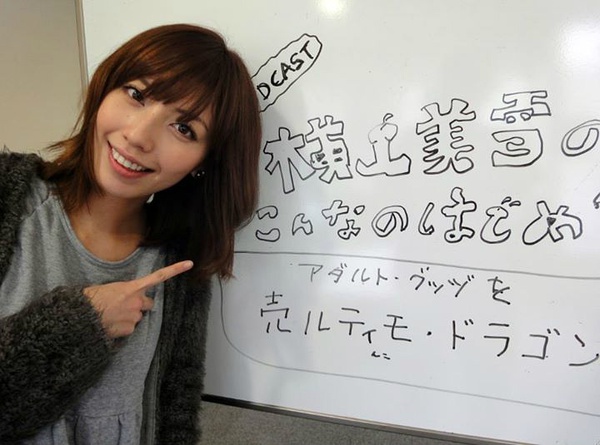 DCAST
横山美雪の
こんなのはじめ
アダルト・グッヅを
売ルティモ・ドラゴン